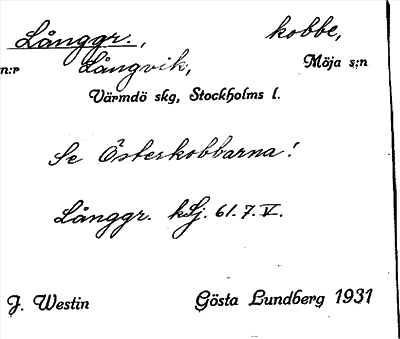 Långgr., kobbe,
n:r Långvik, Möja s:n
Värmdö skg, Stockholms l.
Se Österkobbarna!
Långgr. kLj. 61.7.V.
J. Westin Gösta Lundberg 1931